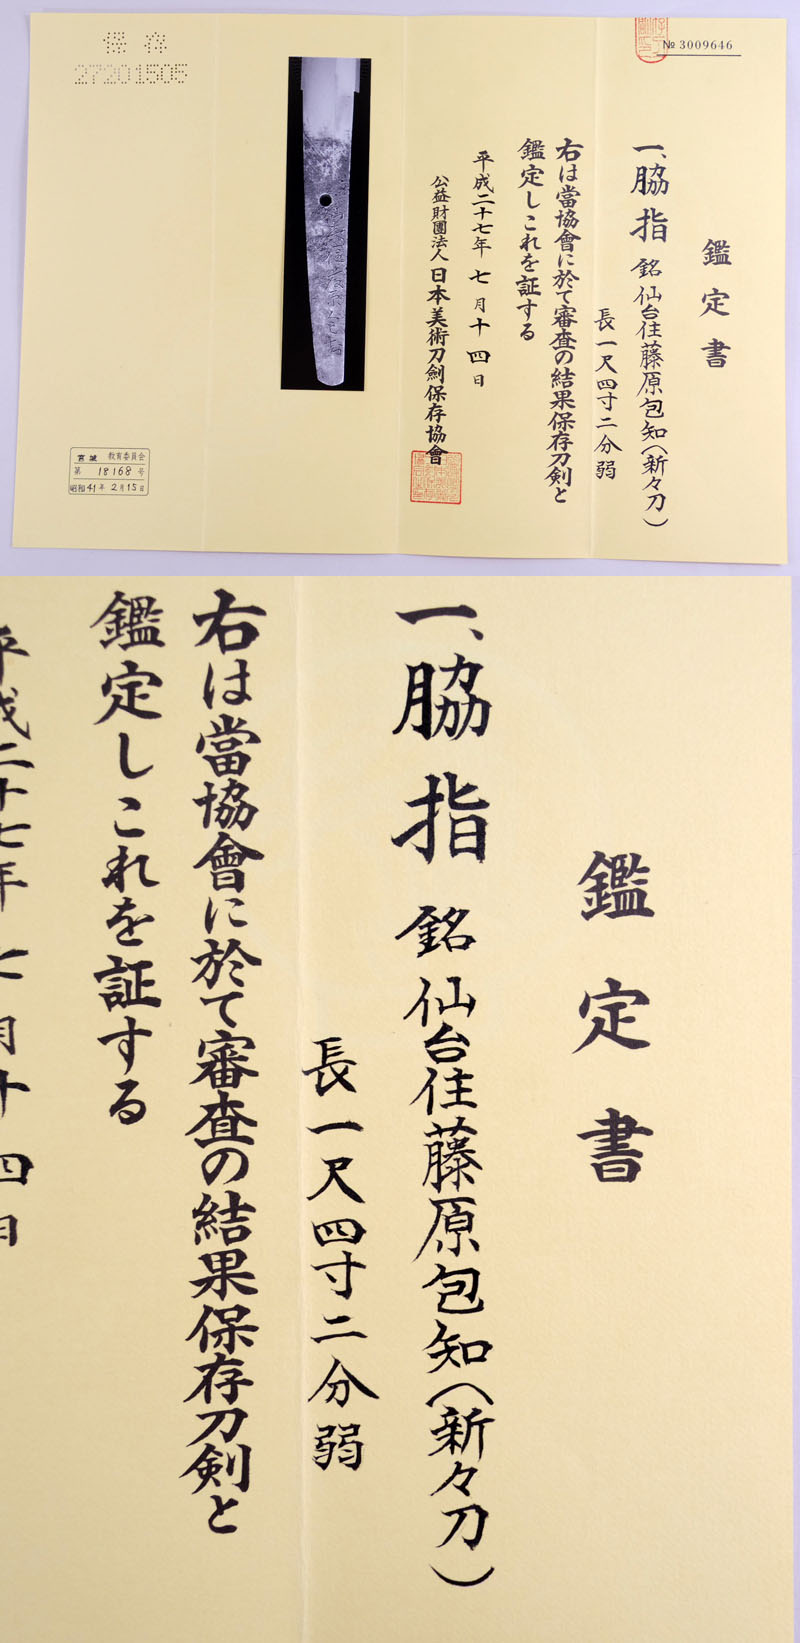 № 3009646
鑑定書
一、脇指 銘 仙台住藤原包知(新々刀)
長一尺四寸二分弱
右は當協會に於て審査の結果保存刀剣と
鑑定しこれを証する
平成二十七年 七月十四日
公益財團法人 日本美術刀劍保存協會
保存
27201505
宮城 教育委員会
第 18168 号
昭和41年2月15日
鑑定書
一、脇指 銘 仙台住藤原包知(新々刀)
長一尺四寸二分弱
右は當協會に於て審査の結果保存刀剣と
鑑定しこれを証する
平成二十七年 七月十四日